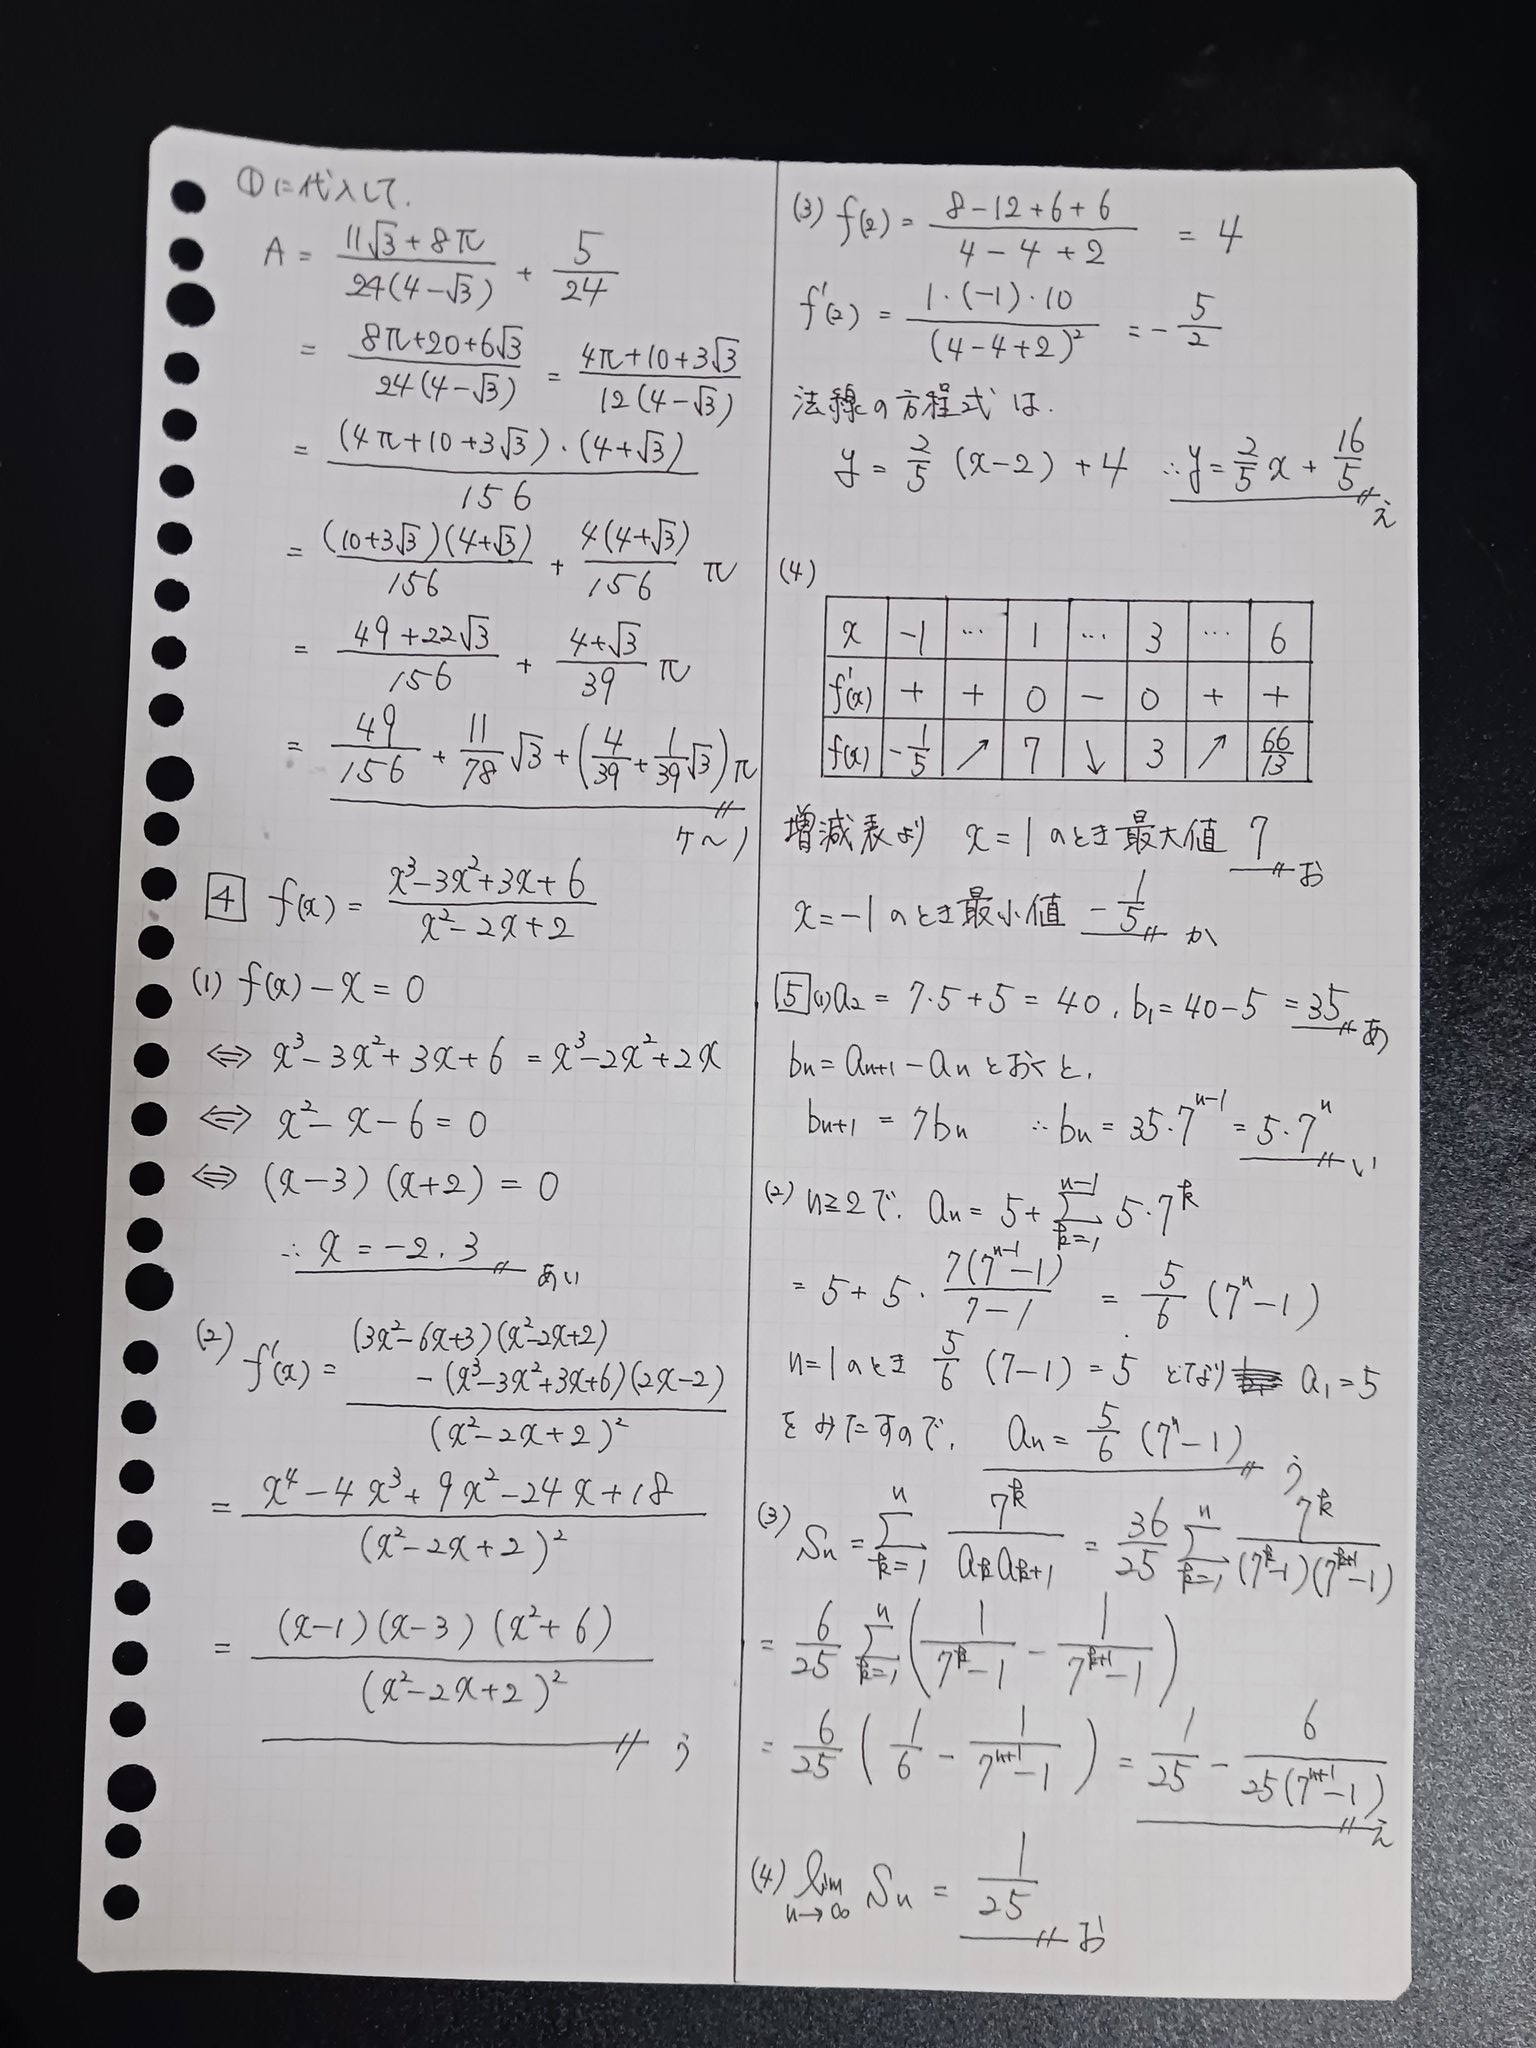 ①に代入して.
A = (11√3+8π)/(24(4-√3)) + 5/24
= (8π+20+6√3)/(24(4-√3)) = (4π+10+3√3)/(12(4-√3))
= ((4π+10+3√3)・(4+√3))/156
= ((10+3√3)(4+√3))/156 + (4(4+√3))/156 π
= (49+22√3)/156 + (4+√3)/39 π
= 49/156 + 11/78 √3 + (4/39 + 1/39 √3)π
ケ〜ノ
4 f(x) = (x³-3x²+3x+6)/(x²-2x+2)
(1) f(x)-x=0
⇔ x³-3x²+3x+6 = x³-2x²+2x
⇔ x²-x-6=0
⇔ (x-3)(x+2)=0
∴ x=-2.3 あい
(2) f'(x) = ((3x²-6x+3)(x²-2x+2) -(x³-3x²+3x+6)(2x-2))/(x²-2x+2)²
= (x⁴-4x³+9x²-24x+18)/(x²-2x+2)²
= ((x-1)(x-3)(x²+6))/(x²-2x+2)²
う
(3) f(2) = (8-12+6+6)/(4-4+2) = 4
f'(2) = (1・(-1)・10)/(4-4+2)² = -5/2
法線の方程式は.
y = 2/5 (x-2)+4 ∴ y = 2/5 x + 16/5 え
(4)
x -1 … 1 … 3 … 6
f'(x) + + 0 - 0 + +
f(x) -1/5 ↗ 7 ↘ 3 ↗ 66/13
増減表より x=1のとき最大値 7 お
x=-1のとき最小値 -1/5 か
5 (1) a₂ = 7・5+5 = 40, b₁ = 40-5 = 35 あ
bₙ = aₙ₊₁-aₙ とおくと,
bₙ₊₁ = 7bₙ ∴ bₙ = 35・7ⁿ⁻¹ = 5・7ⁿ い
(2) n≧2で, aₙ = 5+Σ[k=1→n-1] 5・7ᵏ
= 5+5・(7(7ⁿ⁻¹-1))/(7-1) = 5/6 (7ⁿ-1)
n=1のとき 5/6 (7-1) = 5 となり a₁=5
をみたすので, aₙ = 5/6 (7ⁿ-1) う
(3) Sₙ = Σ[k=1→n] 7ᵏ/(aₖaₖ₊₁) = 36/25 Σ[k=1→n] 7ᵏ/((7ᵏ-1)(7ᵏ⁺¹-1))
= 6/25 Σ[k=1→n] (1/(7ᵏ-1) - 1/(7ᵏ⁺¹-1))
= 6/25 (1/6 - 1/(7ⁿ⁺¹-1)) = 1/25 - 6/(25(7ⁿ⁺¹-1)) え
(4) lim[n→∞] Sₙ = 1/25 お